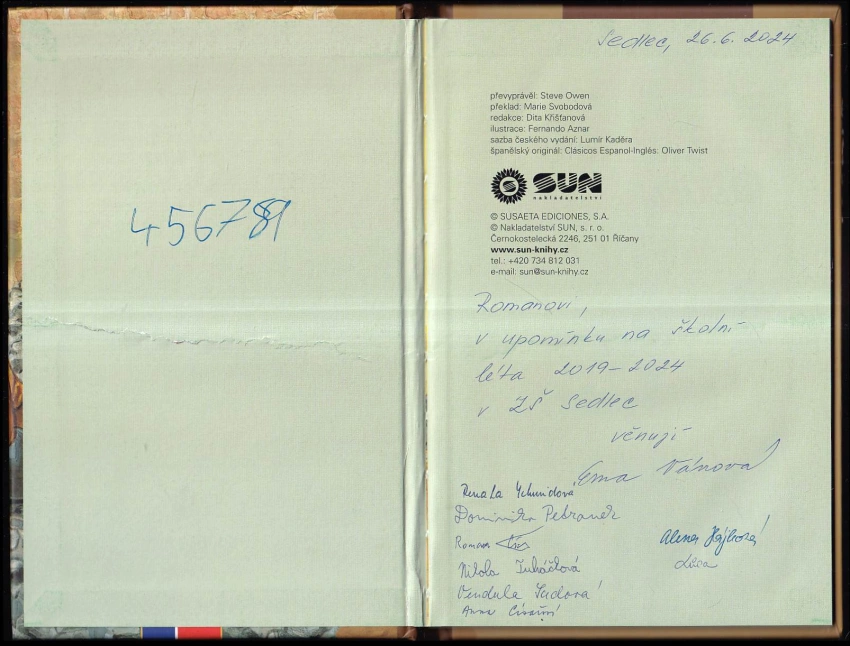 456789
Sedlec, 26.6. 2024
převyprávěl: Steve Owen
překlad: Marie Svobodová
redakce: Dita Křišťanová
ilustrace: Fernando Aznar
sazba českého vydání: Lumír Kaděra
španělský originál: Clásicos Espanol-Inglés: Oliver Twist
SUN
nakladatelství
© SUSAETA EDICIONES, S.A.
© Nakladatelství SUN, s. r. o.
Černokostelecká 2246, 251 01 Říčany
www.sun-knihy.cz
tel.: +420 734 812 031
e-mail: sun@sun-knihy.cz
Romanovi,
v upomínku na školní
léta 2019-2024
v ZŠ Sedlec
věnují
Ema
Renata Schmidová
Dominika
Roman
Alena Hájková
Nikola
Vendula
Anna